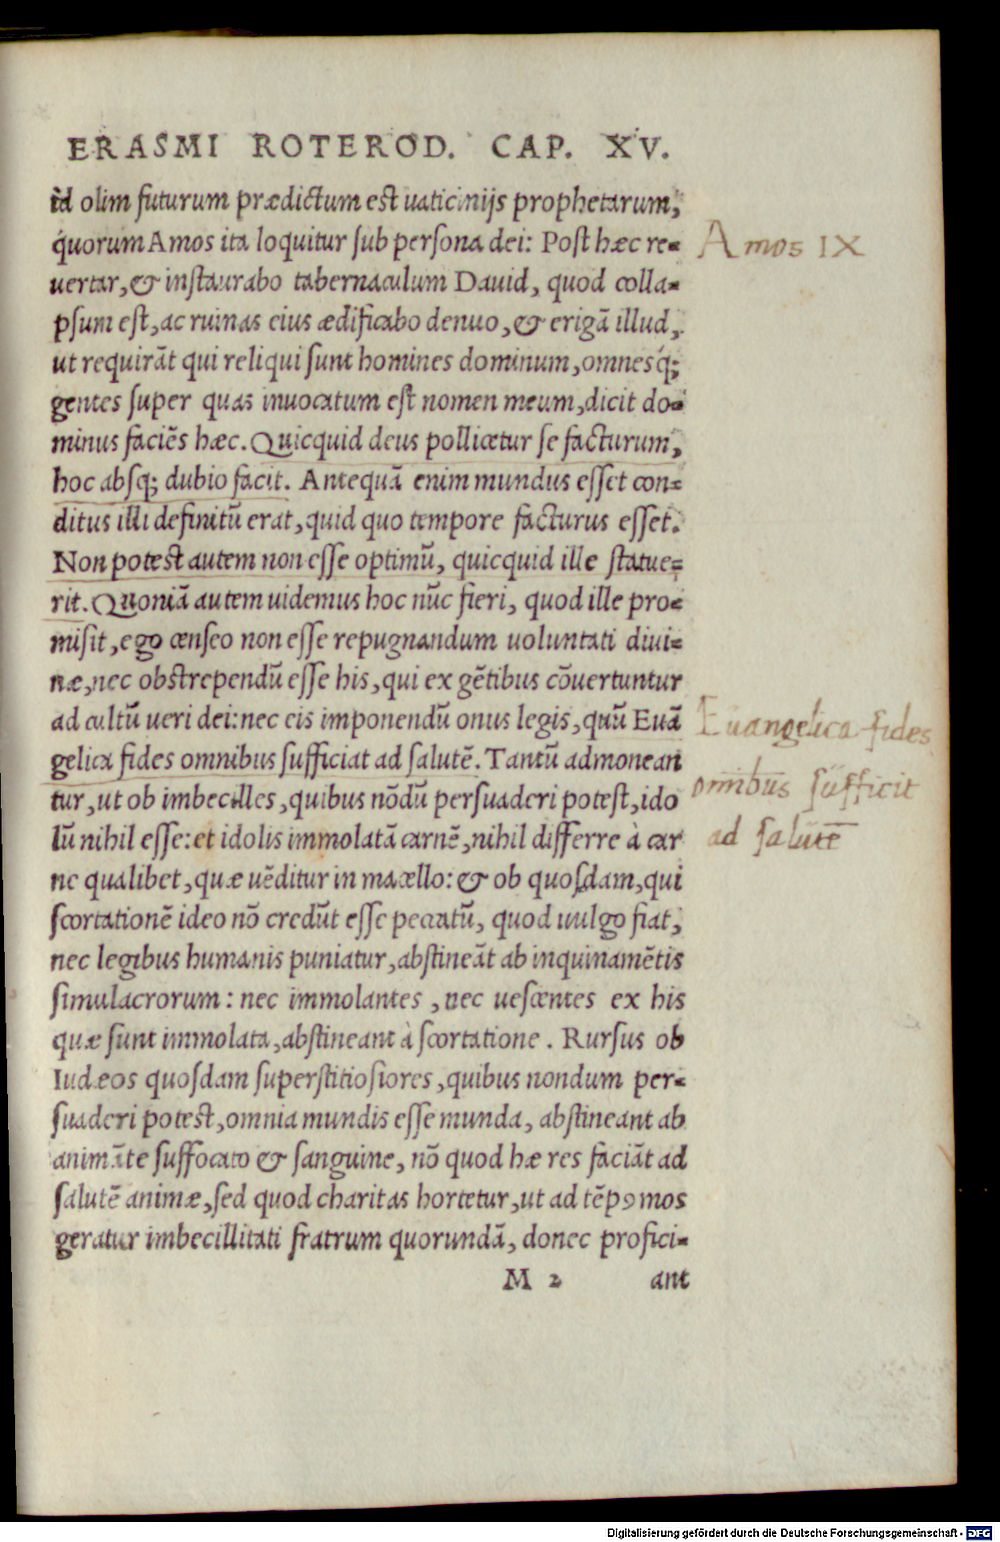 ERASMI ROTEROD. CAP. XV.
id olim futurum prædictum est uaticinijs prophetarum,
quorum Amos ita loquitur sub persona dei: Post hæc re-
uertar, & instaurabo tabernaculum Dauid, quod colla-
psum est, ac ruinas eius ædificabo denuo, & erigā illud,
ut requirāt qui reliqui sunt homines dominum, omnesq́;
gentes super quas inuocatum est nomen meum, dicit do-
minus faciēs hæc. Quicquid deus pollicetur se facturum,
hoc absq; dubio facit. Antequā enim mundus esset con-
ditus illi definitū erat, quid quo tempore facturus esset.
Non potest autem non esse optimū, quicquid ille statue-
rit. Quoniā autem uidemus hoc nūc fieri, quod ille pro-
misit, ego censeo non esse repugnandum uoluntati diui-
næ, nec obstrependū esse his, qui ex gētibus cōuertuntur
ad cultū ueri dei: nec eis imponendū onus legis, quū Euā
gelica fides omnibus sufficiat ad salutē. Tantū admonean
tur, ut ob imbecilles, quibus nōdū persuaderi potest, ido
lū nihil esse: et idolis immolatā carnē, nihil differre à car
ne qualibet, quæ uēditur in macello: & ob quosdam, qui
scortationē ideo nō credūt esse peccatū, quod uulgo fiat,
nec legibus humanis puniatur, abstineāt ab inquinamētis
simulacrorum: nec immolantes, nec uescentes ex his
quæ sunt immolata, abstineant à scortatione. Rursus ob
Iudæos quosdam superstitiosiores, quibus nondum per-
suaderi potest, omnia mundis esse munda, abstineant ab
animāte suffocato & sanguine, nō quod hæ res faciāt ad
salutē animæ, sed quod charitas hortetur, ut ad tēpꝰ mos
geratur imbecillitati fratrum quorundā, donec profici-
M 2 ant
Amos IX
Euangelica fides
omnibus sufficit
ad salutē
Digitalisierung gefördert durch die Deutsche Forschungsgemeinschaft - DFG